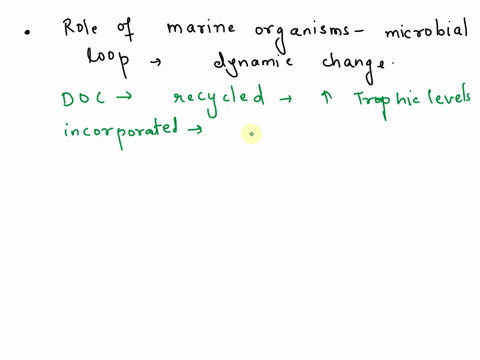 • Role of marine organisms - microbial
loop → dynamic change.
DOC → recycled → ↑ Trophic levels
incorporated →